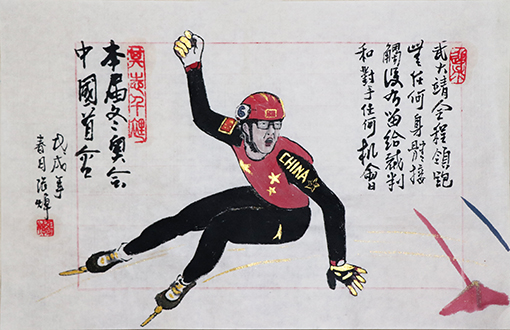 武大靖全程領跑
無任何身體接
觸没有留給裁判
和對手任何机會
CHINA
本届冬奥会
中國首金
戊戌年
春月